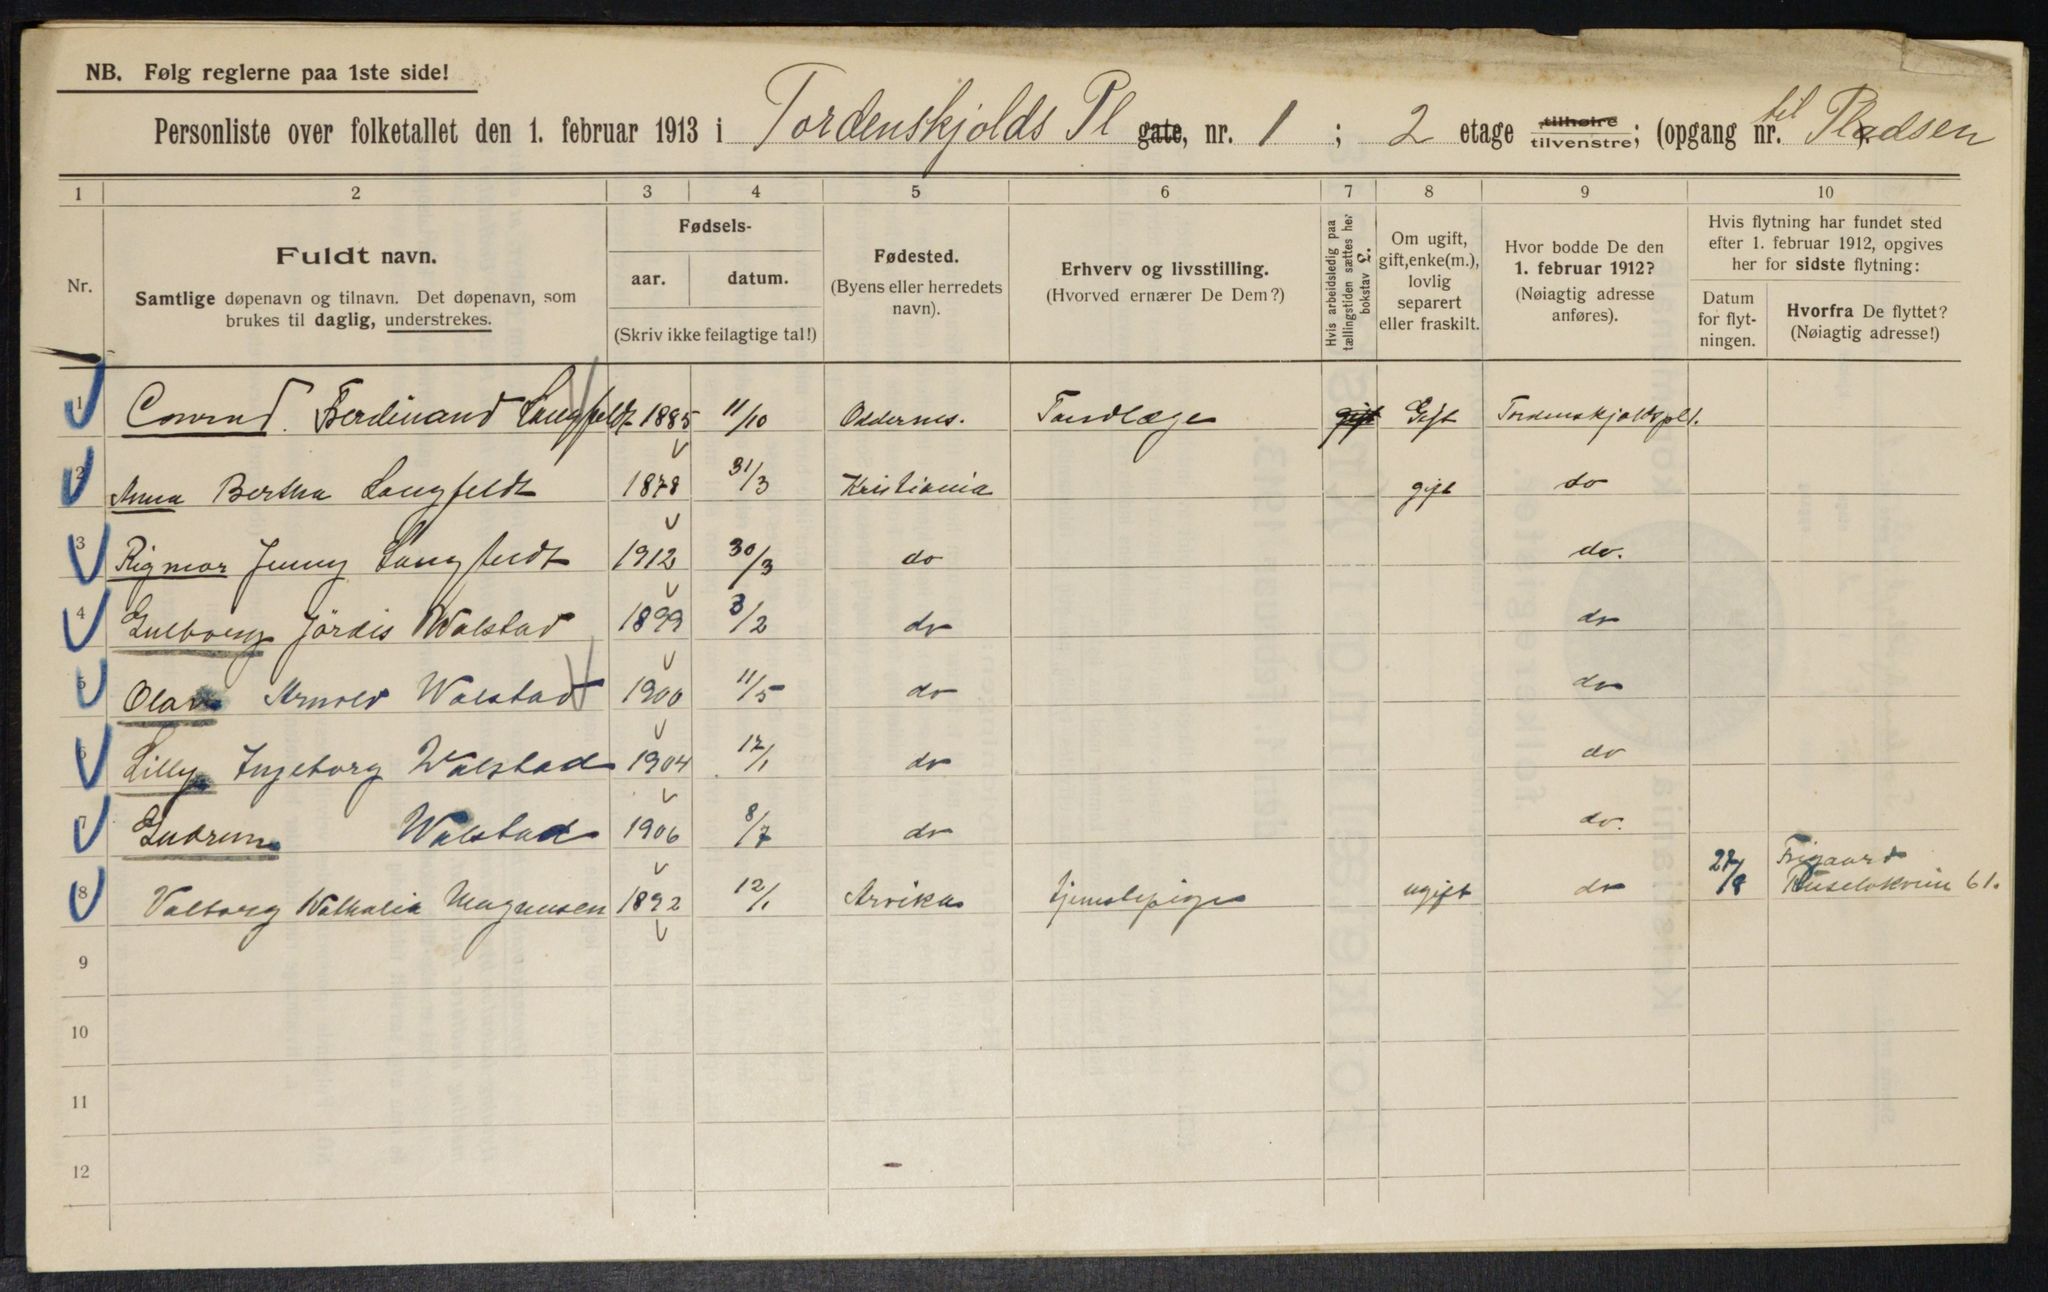 NB. Følg reglerne paa 1ste side!
Personliste over folketallet den 1. februar 1913 i Tordenskjolds Pl gate, nr. 1 ; 2 etage tilhøire tilvenstre; (opgang nr. til Pladsen
1 2 3 4 5 6 7 8 9 10
Nr.
Fuldt navn.
Samtlige døpenavn og tilnavn. Det døpenavn, som
brukes til daglig, understrekes.
Fødsels-
aar. datum.
(Skriv ikke feilagtige tal!)
Fødested.
(Byens eller herredets
navn).
Erhverv og livsstilling.
(Hvorved ernærer De Dem?)
Hvis arbeidsledig paa
tællingstiden sættes her
bokstav L.
Om ugift,
gift, enke(m.),
lovlig
separert
eller fraskilt.
Hvor bodde De den
1. februar 1912?
(Nøiagtig adresse
anføres).
Hvis flytning har fundet sted
efter 1. februar 1912, opgives
her for sidste flytning:
Datum
for flyt-
ningen.
Hvorfra De flyttet?
(Nøiagtig adresse!)
1 Conrad Ferdinand Langfeldt 1885 11/10 Oddernes. Tandlæge gift Gift Tordenskjoldspl 1.
2 Anna Bertha Langfeldt 1878 31/3 Kristiania gift do
3 Rigmor Jenny Langfeldt 1912 30/3 do do.
4 Gulborg Jördis Walstad 1899 3/2 do do
5 Olav Arnold Walstad 1900 11/5 do do
6 Lilly Ingeborg Walstad 1904 12/1 do do
7 Gudrun Walstad 1906 8/7 do do.
8 Valborg Walkalia Magnusen 1892 12/1 Arvika tjenestepige ugift do 27/8 61.
9
10
11
12